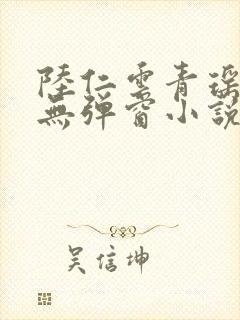 陸仁雲青瑤
無彈窗小説
吴信坤